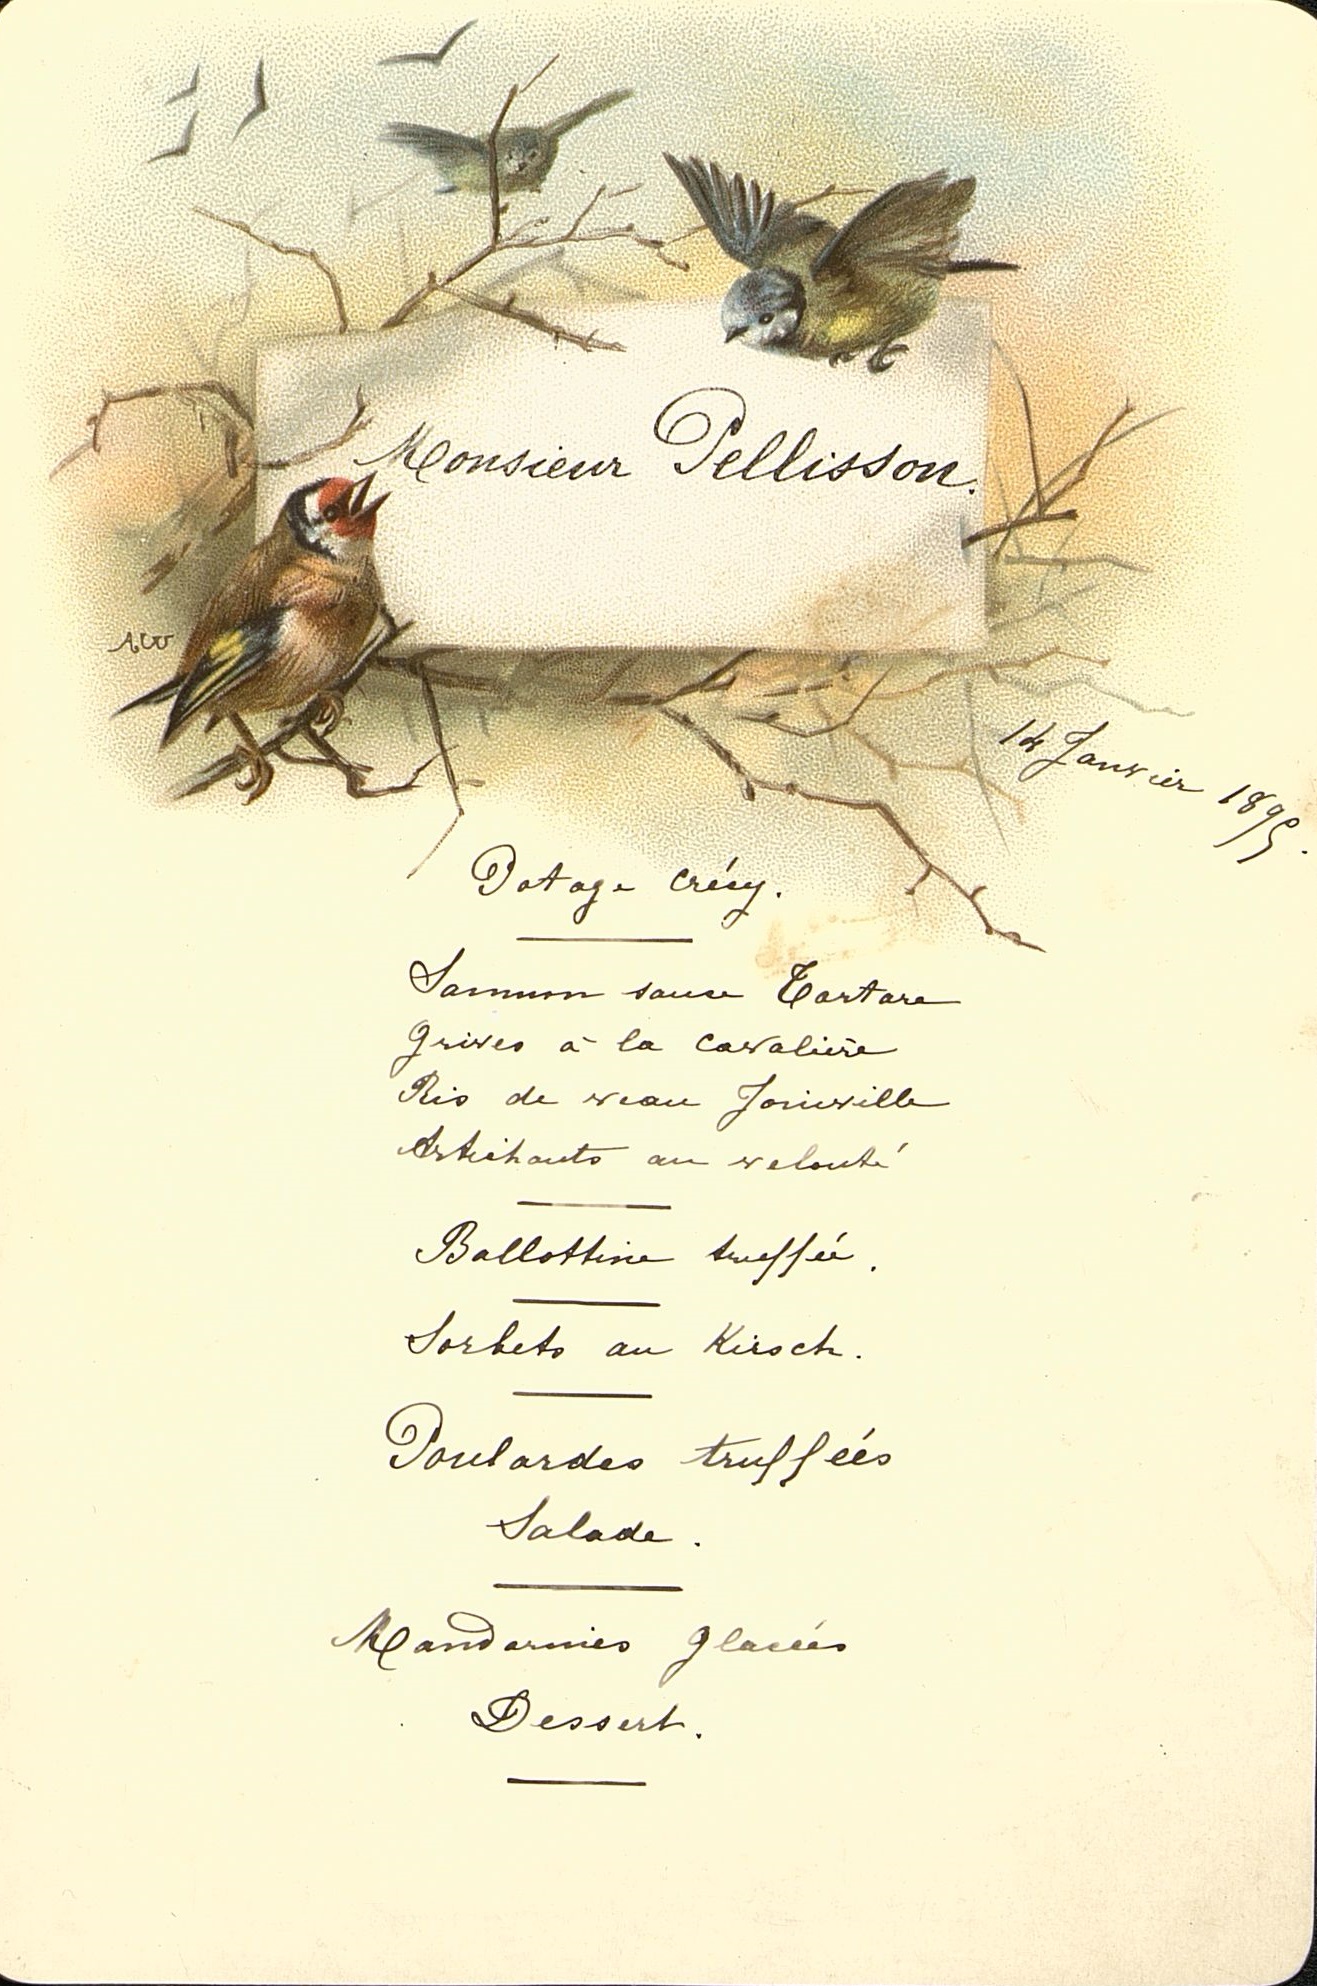 Monsieur Pellisson.
AW
14 Janvier 1895.
Potage crécy.
Saumon sauce Tartare
Grives à la cavalière
Ris de veau Joinville
Artichauts au velouté
Ballottine truffée.
Sorbets au Kirsch.
Poulardes truffées
Salade.
Mandarines glacées
Dessert.